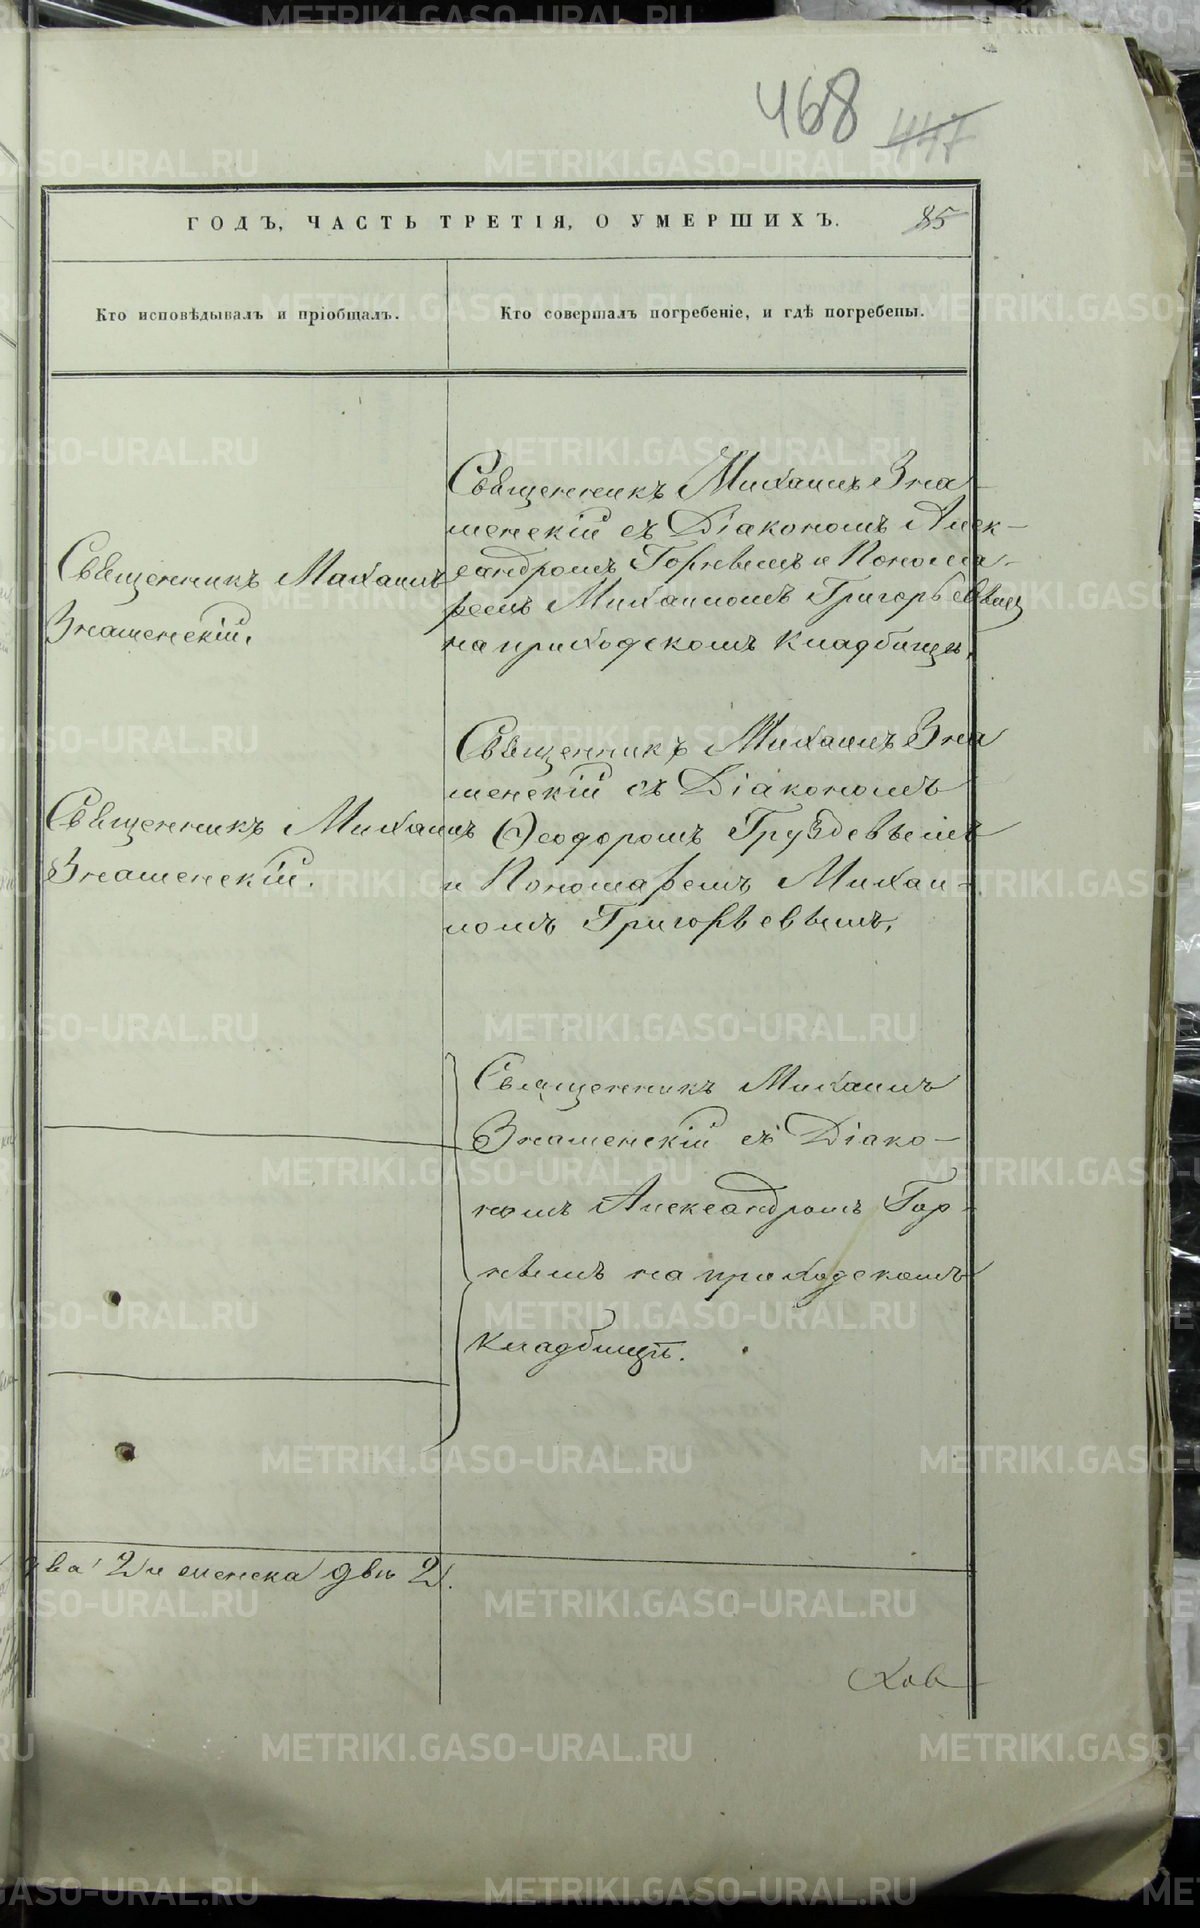 468 447
ГОДЪ, ЧАСТЬ ТРЕТІЯ, О УМЕРШИХЪ.
85
Кто исповѣдывалъ и пріобщалъ.
Кто совершалъ погребеніе, и гдѣ погребены.
Священникъ Михаилъ
Знаменскій.
Священникъ Михаилъ Зна
менскій съ Діакономъ Алек-
сандромъ Горнымъ и Понома-
ремъ Михаиломъ Григорьевымъ
на приходскомъ кладбищѣ.
Священникъ Михаилъ
Знаменскій.
Священникъ Михаилъ Зна
менскій съ Діакономъ
Ѳеодоромъ Груздевымъ
и Пономаремъ Михаи-
ломъ Григорьевымъ.
Священникъ Михаилъ
Знаменскій съ Діако-
номъ Александромъ Гор-
нымъ на приходскомъ
кладбищѣ.
два 2 и женска двѣ 2.
METRIKI.GASO-URAL.RU